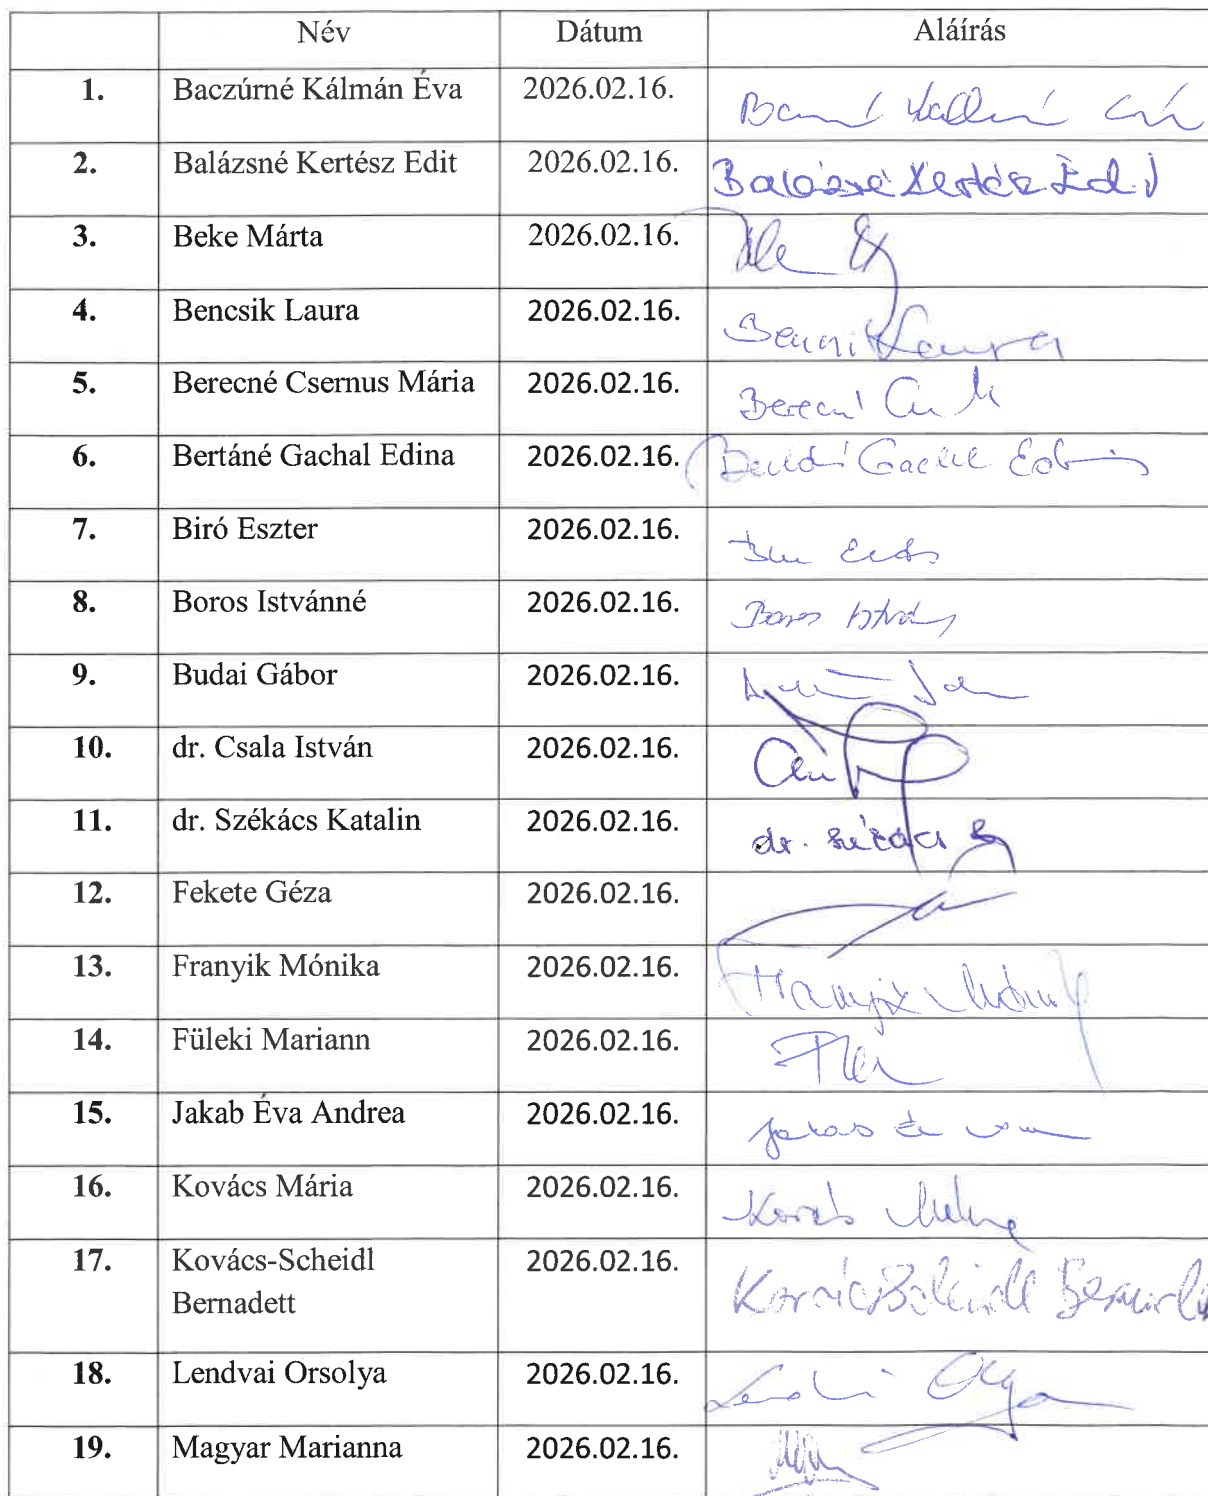 Név Dátum Aláírás
1. Baczúrné Kálmán Éva 2026.02.16.
2. Balázsné Kertész Edit 2026.02.16. Balázsné Kertész Edit
3. Beke Márta 2026.02.16.
4. Bencsik Laura 2026.02.16. Bencsik Laura
5. Berecné Csernus Mária 2026.02.16. Berecné
6. Bertáné Gachal Edina 2026.02.16.
7. Biró Eszter 2026.02.16.
8. Boros Istvánné 2026.02.16. Boros
9. Budai Gábor 2026.02.16.
10. dr. Csala István 2026.02.16.
11. dr. Székács Katalin 2026.02.16. dr. Székács
12. Fekete Géza 2026.02.16.
13. Franyik Mónika 2026.02.16. Franyik Mónika
14. Füleki Mariann 2026.02.16.
15. Jakab Éva Andrea 2026.02.16. Jakab
16. Kovács Mária 2026.02.16. Kovács
17. Kovács-Scheidl 2026.02.16. Kovács-Scheidl
Bernadett
18. Lendvai Orsolya 2026.02.16.
19. Magyar Marianna 2026.02.16.